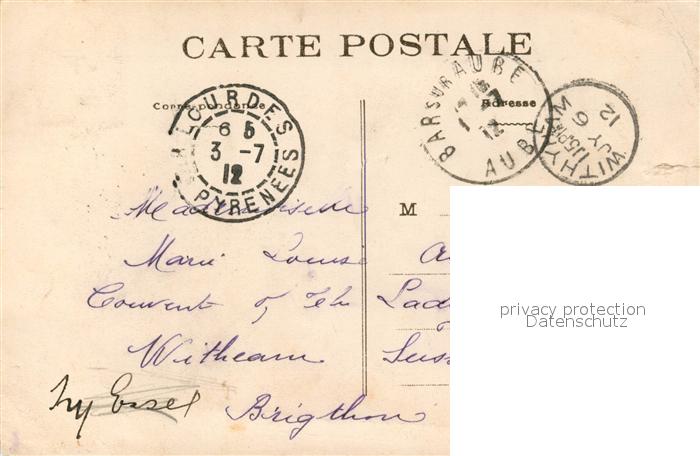 CARTE POSTALE
Correspondance
Adresse
LOURDES
6 5
3 -7
12
PYRENEES
BAR SUR AUBE
12
AUBE
WITHYHAM
JY 6
12
M
Mademoiselle
Marie Louise
Convent of the Lady
Witheam Suss
Brigthon
privacy protection
Datenschutz